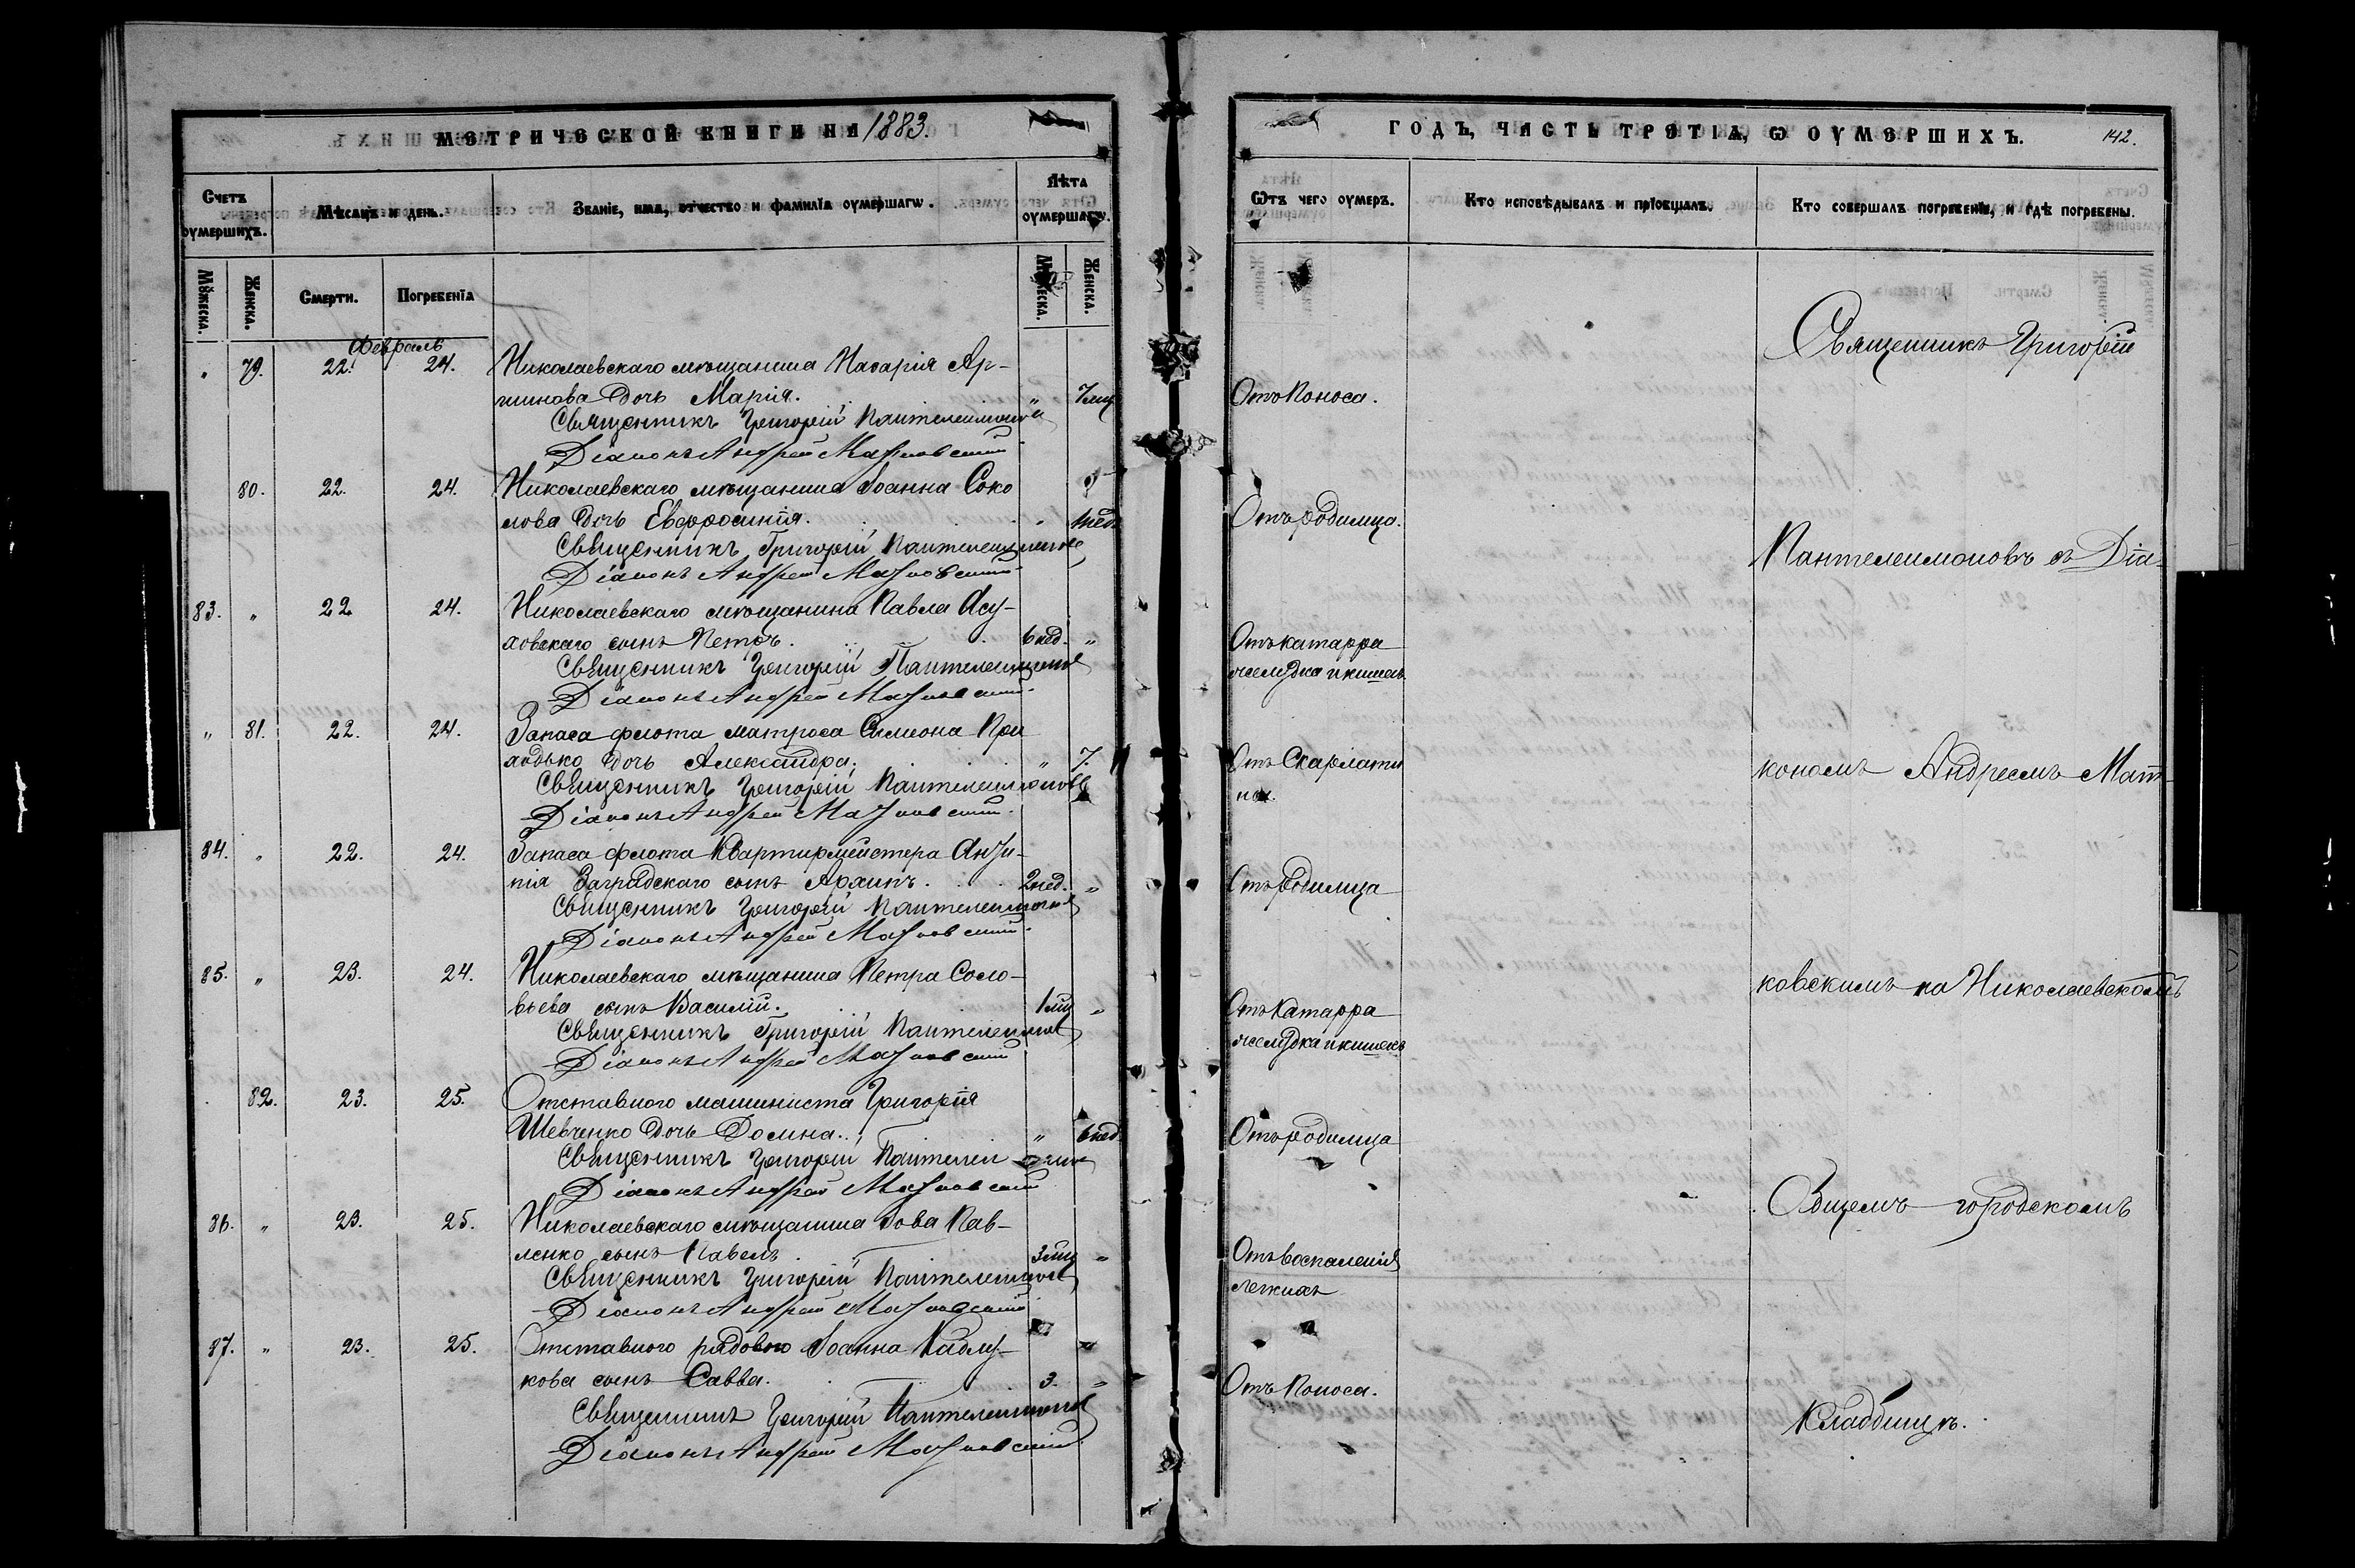 МЕТРИЧЕСКОЙ КНИГИ НА 1883.
Счетъ оумершихъ.
Мѣсяцъ и день.
Званіе, имя, отчество и фамилія оумершагѡ.
Лѣта оумершагѡ.
Мꙋжеска.
Женска.
Смерти.
Погребенїа
Мꙋжеска.
Женска.
Февраль
„ 79. 22. 24. Николаевскаго мѣщанина Назарія Ар-
шинова дочь Марія. „ 7 мц
Священникъ Григорій Пантелеимоновъ
Діаконъ Андрей Матковскій
80. 22. 24. Николаевскаго мѣщанина Іоанна Соко
лова дочь Евфросинія. 1 нед.
Священникъ Григорій Пантелеимоновъ
Діаконъ Андрей Матковскій
83. „ 22 24. Николаевскаго мѣщанина Павла
ховскаго сынъ Петръ. 6 нед. „
Священникъ Григорій Пантелеимоновъ
Діаконъ Андрей Матковскій
„ 81. 22. 24. Запаса флота матроса Симеона При
ходько дочь Александра. „ 7.
Священникъ Григорій Пантелеимоновъ
Діаконъ Андрей Матковскій
84. „ 22. 24. Запаса флота Квартирмейстера
нія Заградскаго сынъ Архипъ. 2 нед. „
Священникъ Григорій Пантелеимоновъ
Діаконъ Андрей Матковскій
85. „ 23. 24. Николаевскаго мѣщанина Петра Соло-
вьева сынъ Василій. 1 мц „
Священникъ Григорій Пантелеимоновъ
Діаконъ Андрей Матковскій
82. 23. 25. Отставного машиниста Григорія
Шевченко дочь Домна. „ 6 нед.
Священникъ Григорій Пантелеимоновъ
Діаконъ Андрей Матковскій
86. „ 23. 25. Николаевскаго мѣщанина Іова Пав-
ленко сынъ Павелъ. 3 мц „
Священникъ Григорій Пантелеимоновъ
Діаконъ Андрей Матковскій
87. „ 23. 25. Отставного рядового Іоанна Каблу-
кова сынъ Савва. 3. „
Священникъ Григорій Пантелеимоновъ
Діаконъ Андрей Матковскій
ГОДЪ, ЧАСТЬ ТРЕТІА, Ѡ ОУМЕРШИХЪ. 142.
Ѿтъ чего оумеръ.
Кто исповѣдывалъ и прїобщалъ.
Кто совершалъ погребенїе, и гдѣ погребены.
Отъ Поноса.
Отъ родимца.
Отъ катарра
желудка и кишекъ
Отъ Скарлати
ны.
Отъ родимца
Отъ Катарра
желудка и кишекъ
Отъ родимца
Отъ воспаленія
легкихъ
Отъ Поноса.
Священникъ Григорій
Пантелеимоновъ съ Діа-
кономъ Андреемъ Мат-
ковскимъ на Николаевскомъ
Общемъ городскомъ
Кладбищѣ.